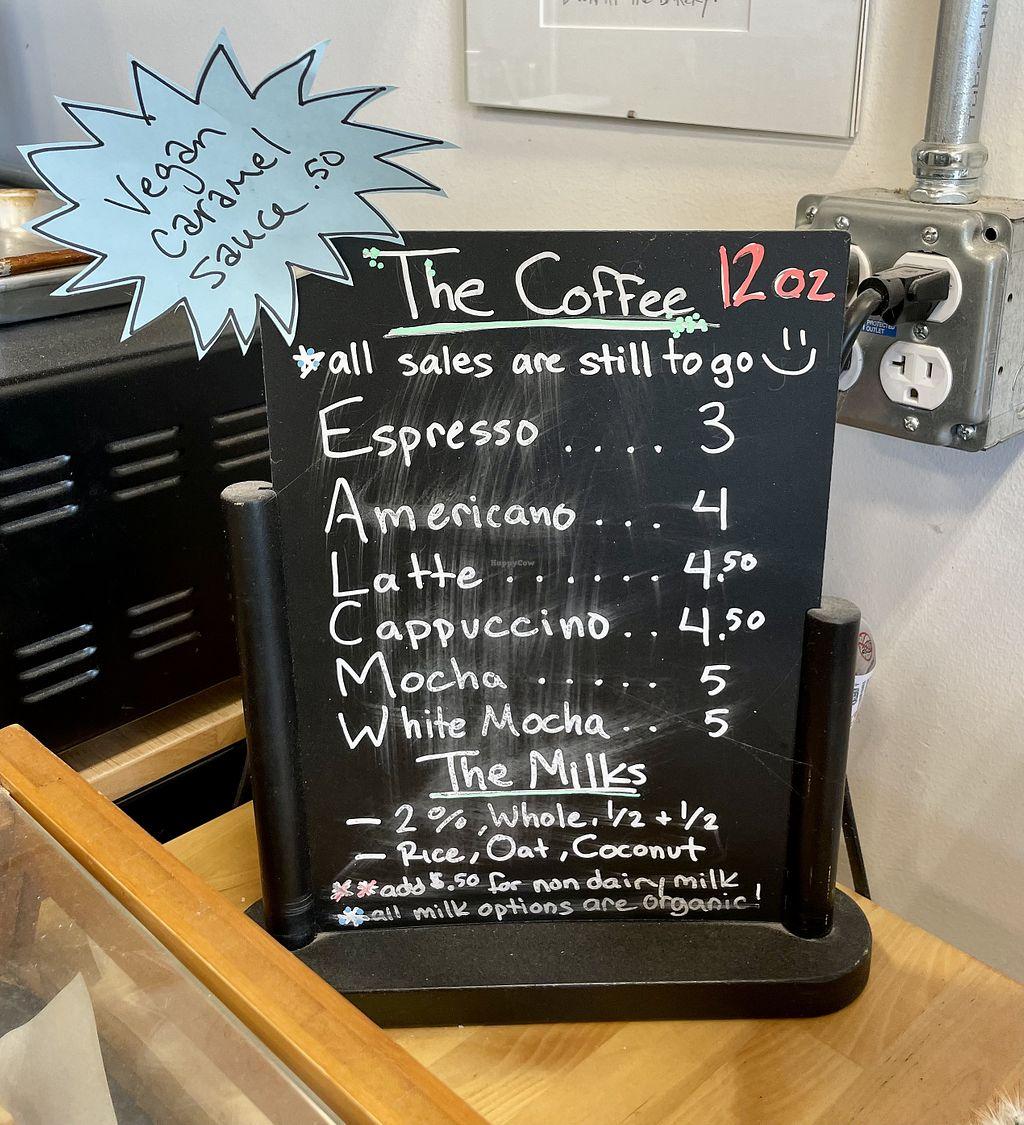 Vegan
Caramel
Sauce .50
The Coffee 12 oz
*all sales are still to go
Espresso .... 3
Americano ... 4
Latte ....... 4.50
Cappuccino .. 4.50
Mocha ..... 5
White Mocha .. 5
The Milks
- 2%, Whole, 1/2 + 1/2
- Rice, Oat, Coconut
**add $.50 for non dairy milk
*all milk options are organic!
HappyCow
PROTECTED
OUTLET